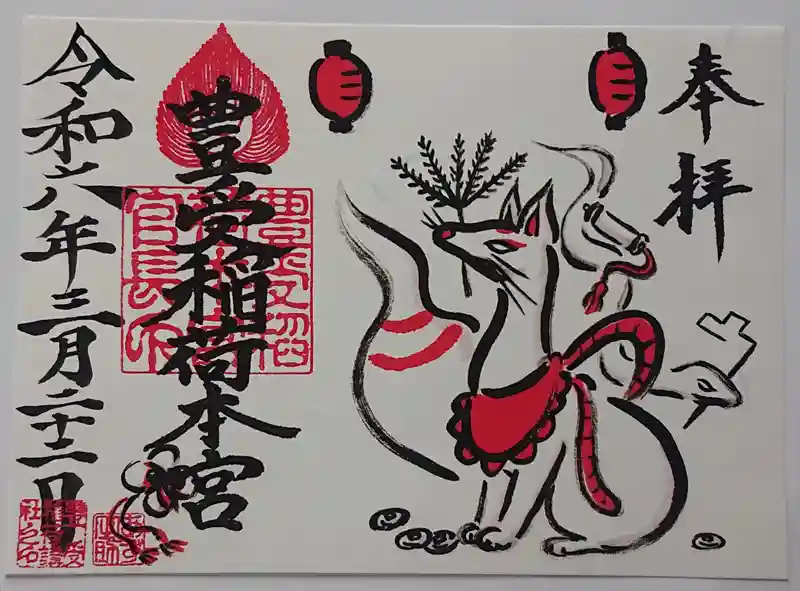 奉拝
豊受稲荷本宮
令和六年三月二十二日